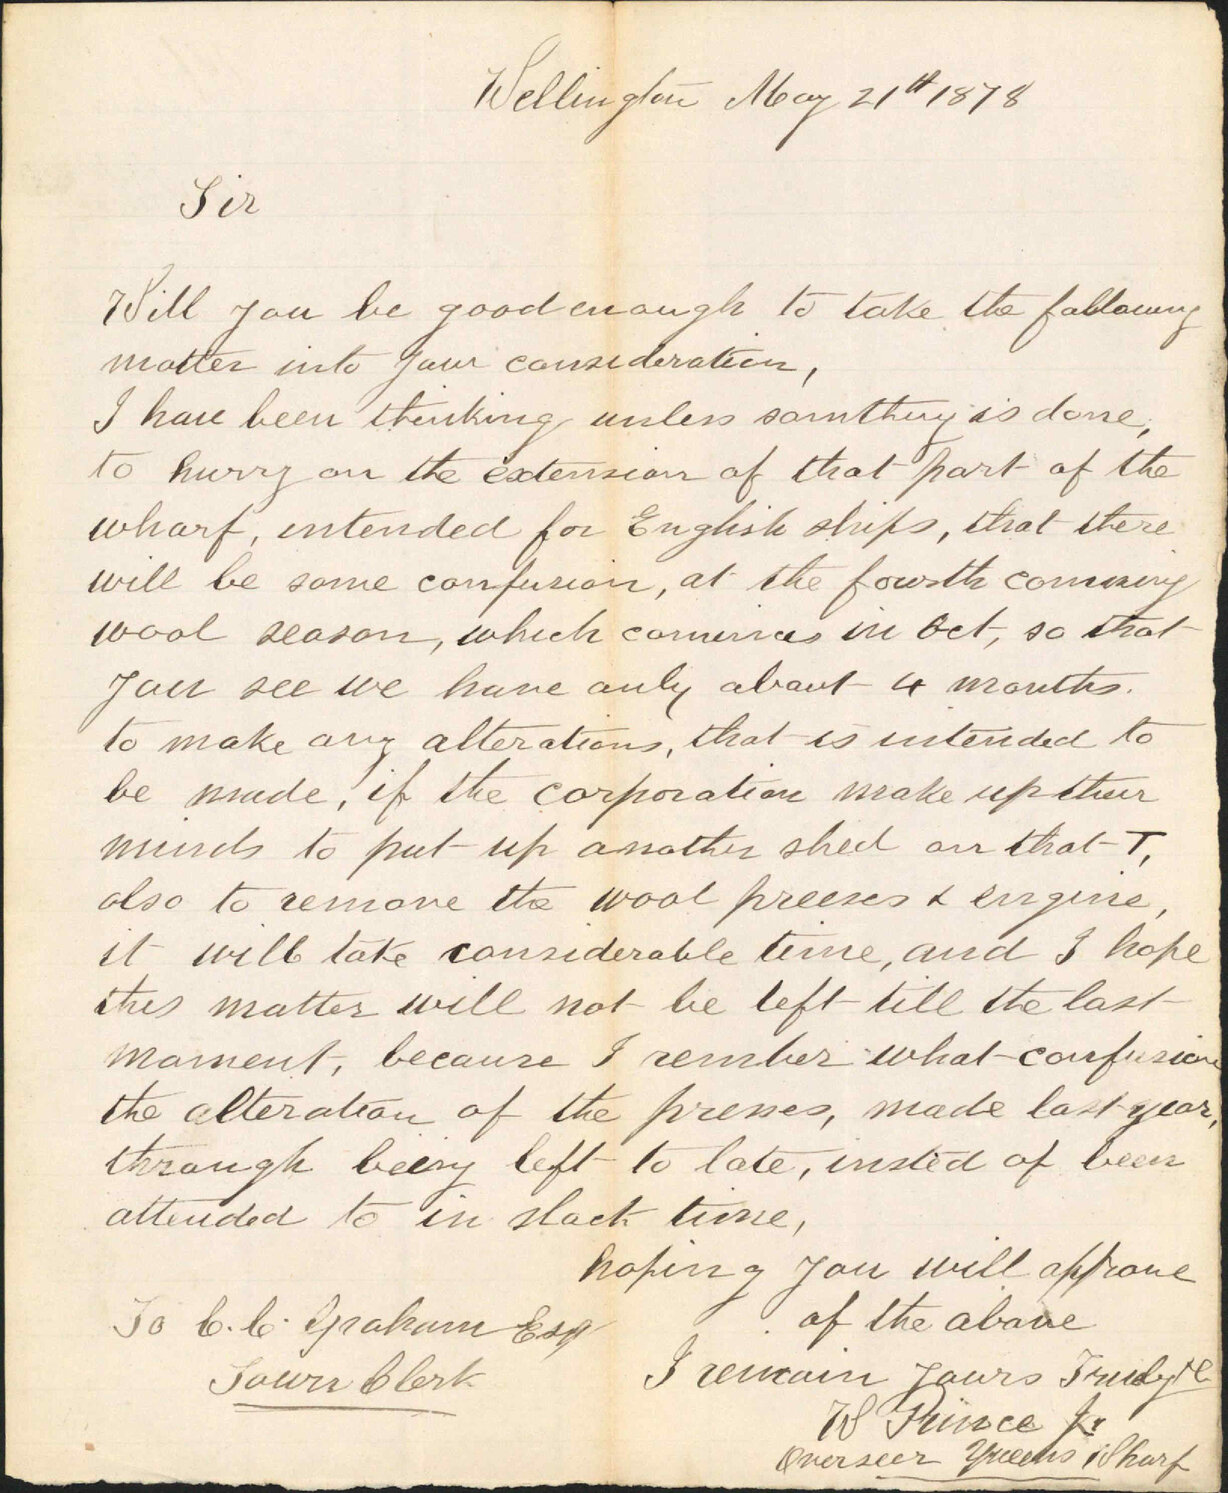 Wellington May 21th 1878
Sir
Will you be good enough to take the following
matter into your consideration,
I have been thinking unless somthing is done,
to hurry on the extension of that part of the
wharf, intended for English ships, that there
will be some confusion, at the fowrth comming
wool season, which commences in Oct, so that
you see we have only about 4 months.
to make any alterations, that is intended to
be made, if the corporation make up their
minds to put up another shed on that T,
also to remove the wool preeses & engine,
it will take considerable time, and I hope
this matter will not be left till the last
moment, because I rember what confusion
the alteration of the presses, made last year,
through being left to late, insted of been
attended to in slack time,
hoping you will approve
of the above
To C. C. Graham Esq
Town Clerk
I remain yours Truly &c
W Prince Jr
Overseer Queens Wharf